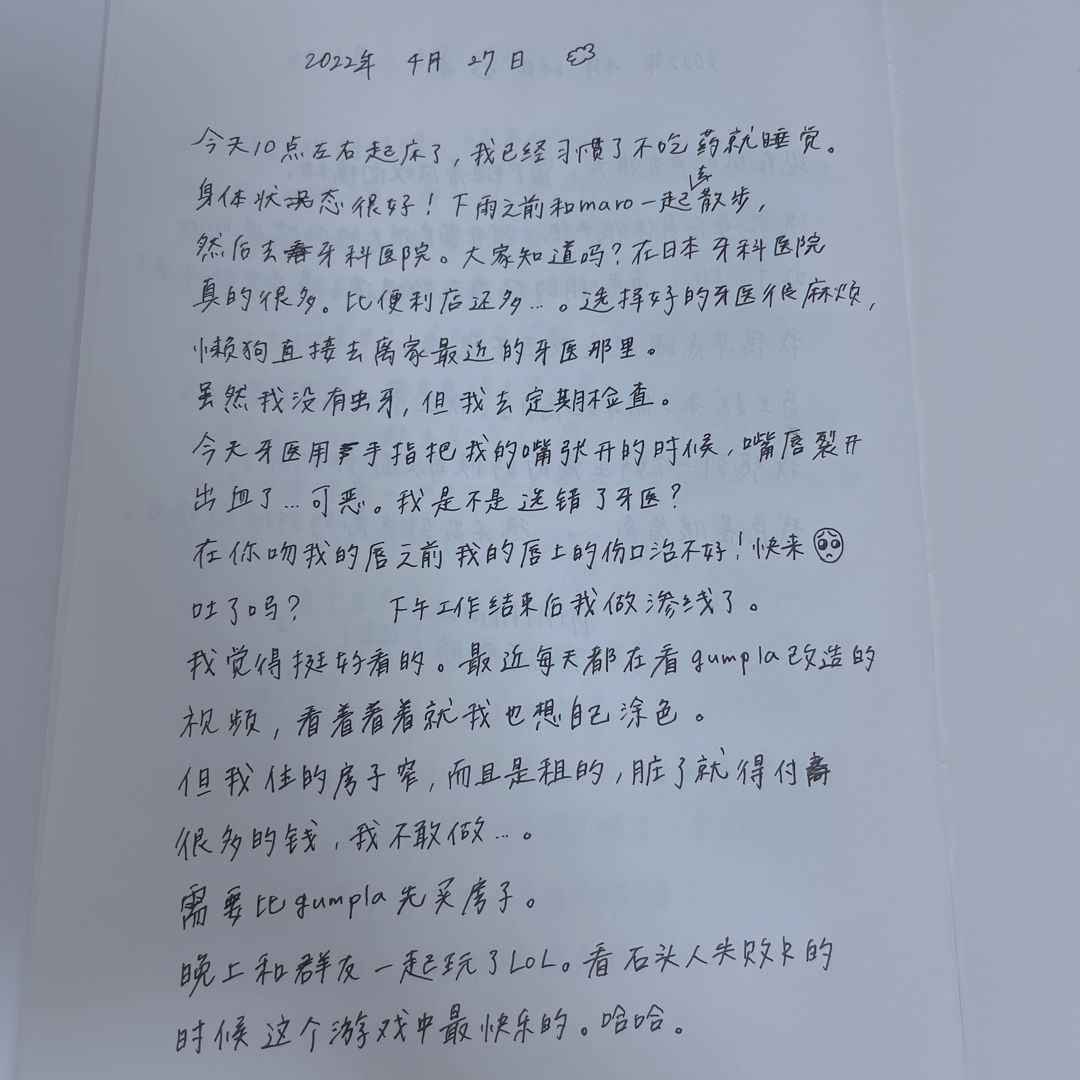 2022年 4月 27日
今天10点左右起床了，我已经习惯了不吃药就睡觉。
身体状况态很好！下雨之前和maro一起去散步，
然后去牙科医院。大家知道吗？在日本牙科医院
真的很多。比便利店还多…。选择好的牙医很麻烦，
懒狗直接去离家最近的牙医那里。
虽然我没有虫牙，但我去定期检查。
今天牙医用手指把我的嘴张开的时候，嘴唇裂开
出血了…可恶。我是不是选错了牙医？
在你吻我的唇之前我的唇上的伤口治不好！快来🥺
吐了吗？ 下午工作结束后我做渗线了。
我觉得挺好看的。最近每天都在看gumpla改造的
视频，看着看着就我也想自己涂色。
但我住的房子窄，而且是租的，脏了就得付
很多的钱，我不敢做…。
需要比gumpla先买房子。
晚上和群友一起玩了LOL。看石头人失败R的
时候这个游戏中最快乐的。哈哈。